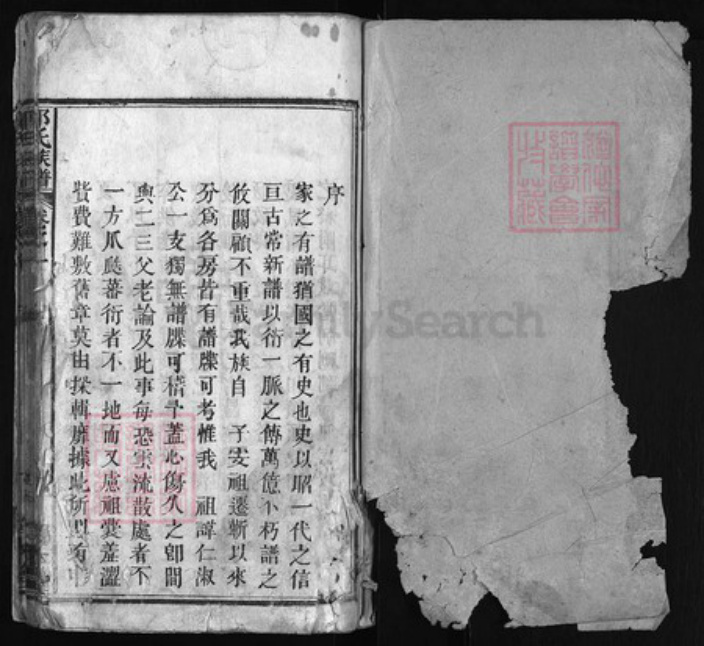 序
家之有譜猶國之有史也史以昭一代之信
亘古常新譜以衍一脈之傳萬億不朽譜之
攸關顧不重哉我族自 子安祖遷蘄以來
分爲各房昔有譜牒可考惟我 祖諱仁淑
公一支獨無譜牒可稽予蓋心傷久之卽間
與二三父老論及此事每恐雲流散處者不
一方瓜瓞蕃衍者不一地而又慮祖囊羞澀
貲費難敷舊章莫由採輯靡據此所以有
氏族譜
卷之一
FamilySearch